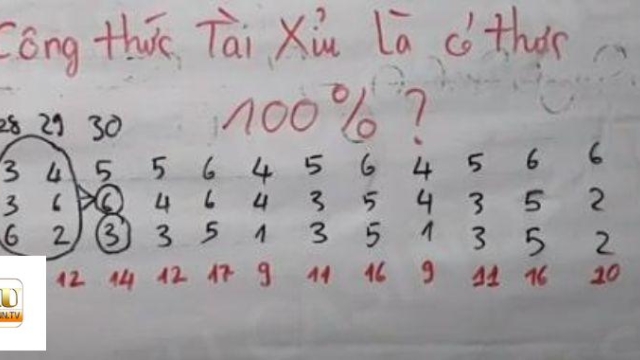 Công thức Tài Xỉu là có thực
100% ?
28 29 30
3 4 5 5 6 4 5 6 4 5 6 6
3 6 6 4 6 4 3 5 4 3 5 2
6 2 3 3 5 1 3 5 1 3 5 2
12 14 12 17 9 11 16 9 11 16 10
N.TV